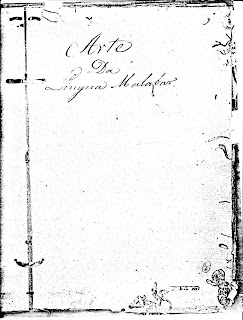 Arte
Da
Lingua Malabar